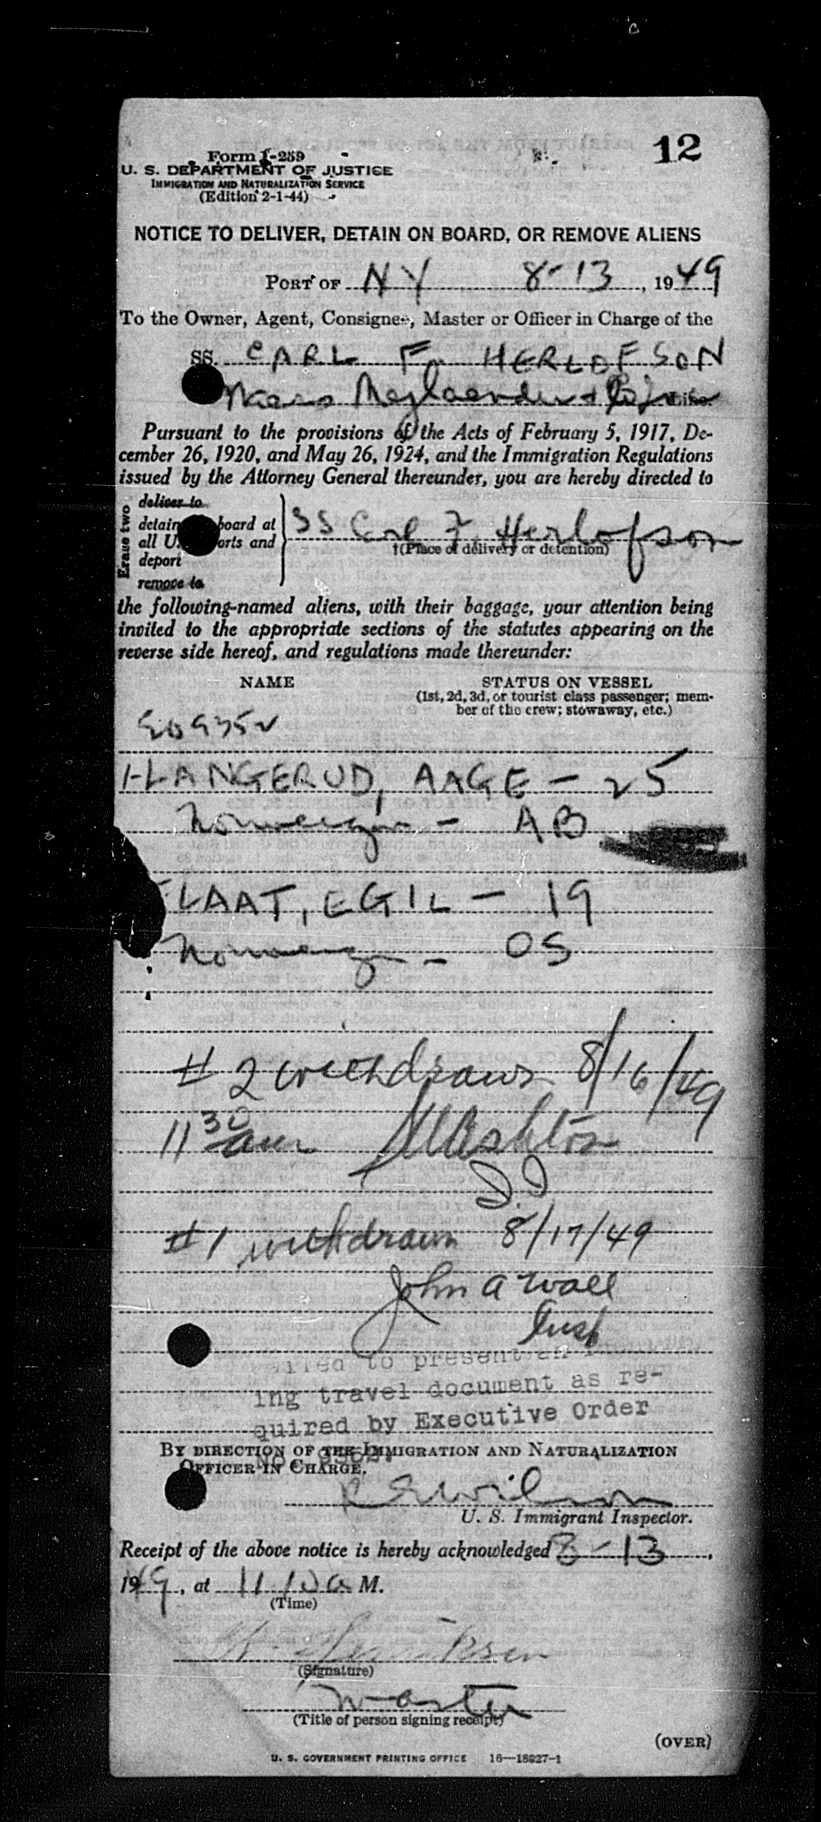 12
Form I-259
U. S. DEPARTMENT OF JUSTICE
IMMIGRATION AND NATURALIZATION SERVICE
(Edition 2-1-44)
NOTICE TO DELIVER, DETAIN ON BOARD, OR REMOVE ALIENS
PORT OF NY 8-13, 1949
To the Owner, Agent, Consignee, Master or Officer in Charge of the
SS. CARL F. HERLOFSON
Pursuant to the provisions of the Acts of February 5, 1917, De-
cember 26, 1920, and May 26, 1924, and the Immigration Regulations
issued by the Attorney General thereunder, you are hereby directed to
Erase two
deliver to
detain board at
all U. orts and
deport
remove to
SS Carl F. Herlofson
†(Place of delivery or detention)
the following-named aliens, with their baggage, your attention being
invited to the appropriate sections of the statutes appearing on the
reverse side hereof, and regulations made thereunder:
NAME STATUS ON VESSEL
(1st, 2d, 3d, or tourist class passenger; mem-
ber of the crew; stowaway, etc.)
1-LANGERUD, AAGE - 25
Norwegian - AB
FLAAT, EGIL - 19
Norwegian - OS
# 2 withdrawn 8/16/49
11 30 am Ashton
# 1 withdrawn 8/17/49
John A Wall
Insp
to present an
ing travel document as re-
quired by Executive Order
No.
BY DIRECTION OF THE IMMIGRATION AND NATURALIZATION
OFFICER IN CHARGE.
Wilson
U. S. Immigrant Inspector.
Receipt of the above notice is hereby acknowledged 8-13,
1949, at 11 10 a M.
(Time)
(Signature)
Master
(Title of person signing receipt)
(OVER)
U. S. GOVERNMENT PRINTING OFFICE 16—18927-1